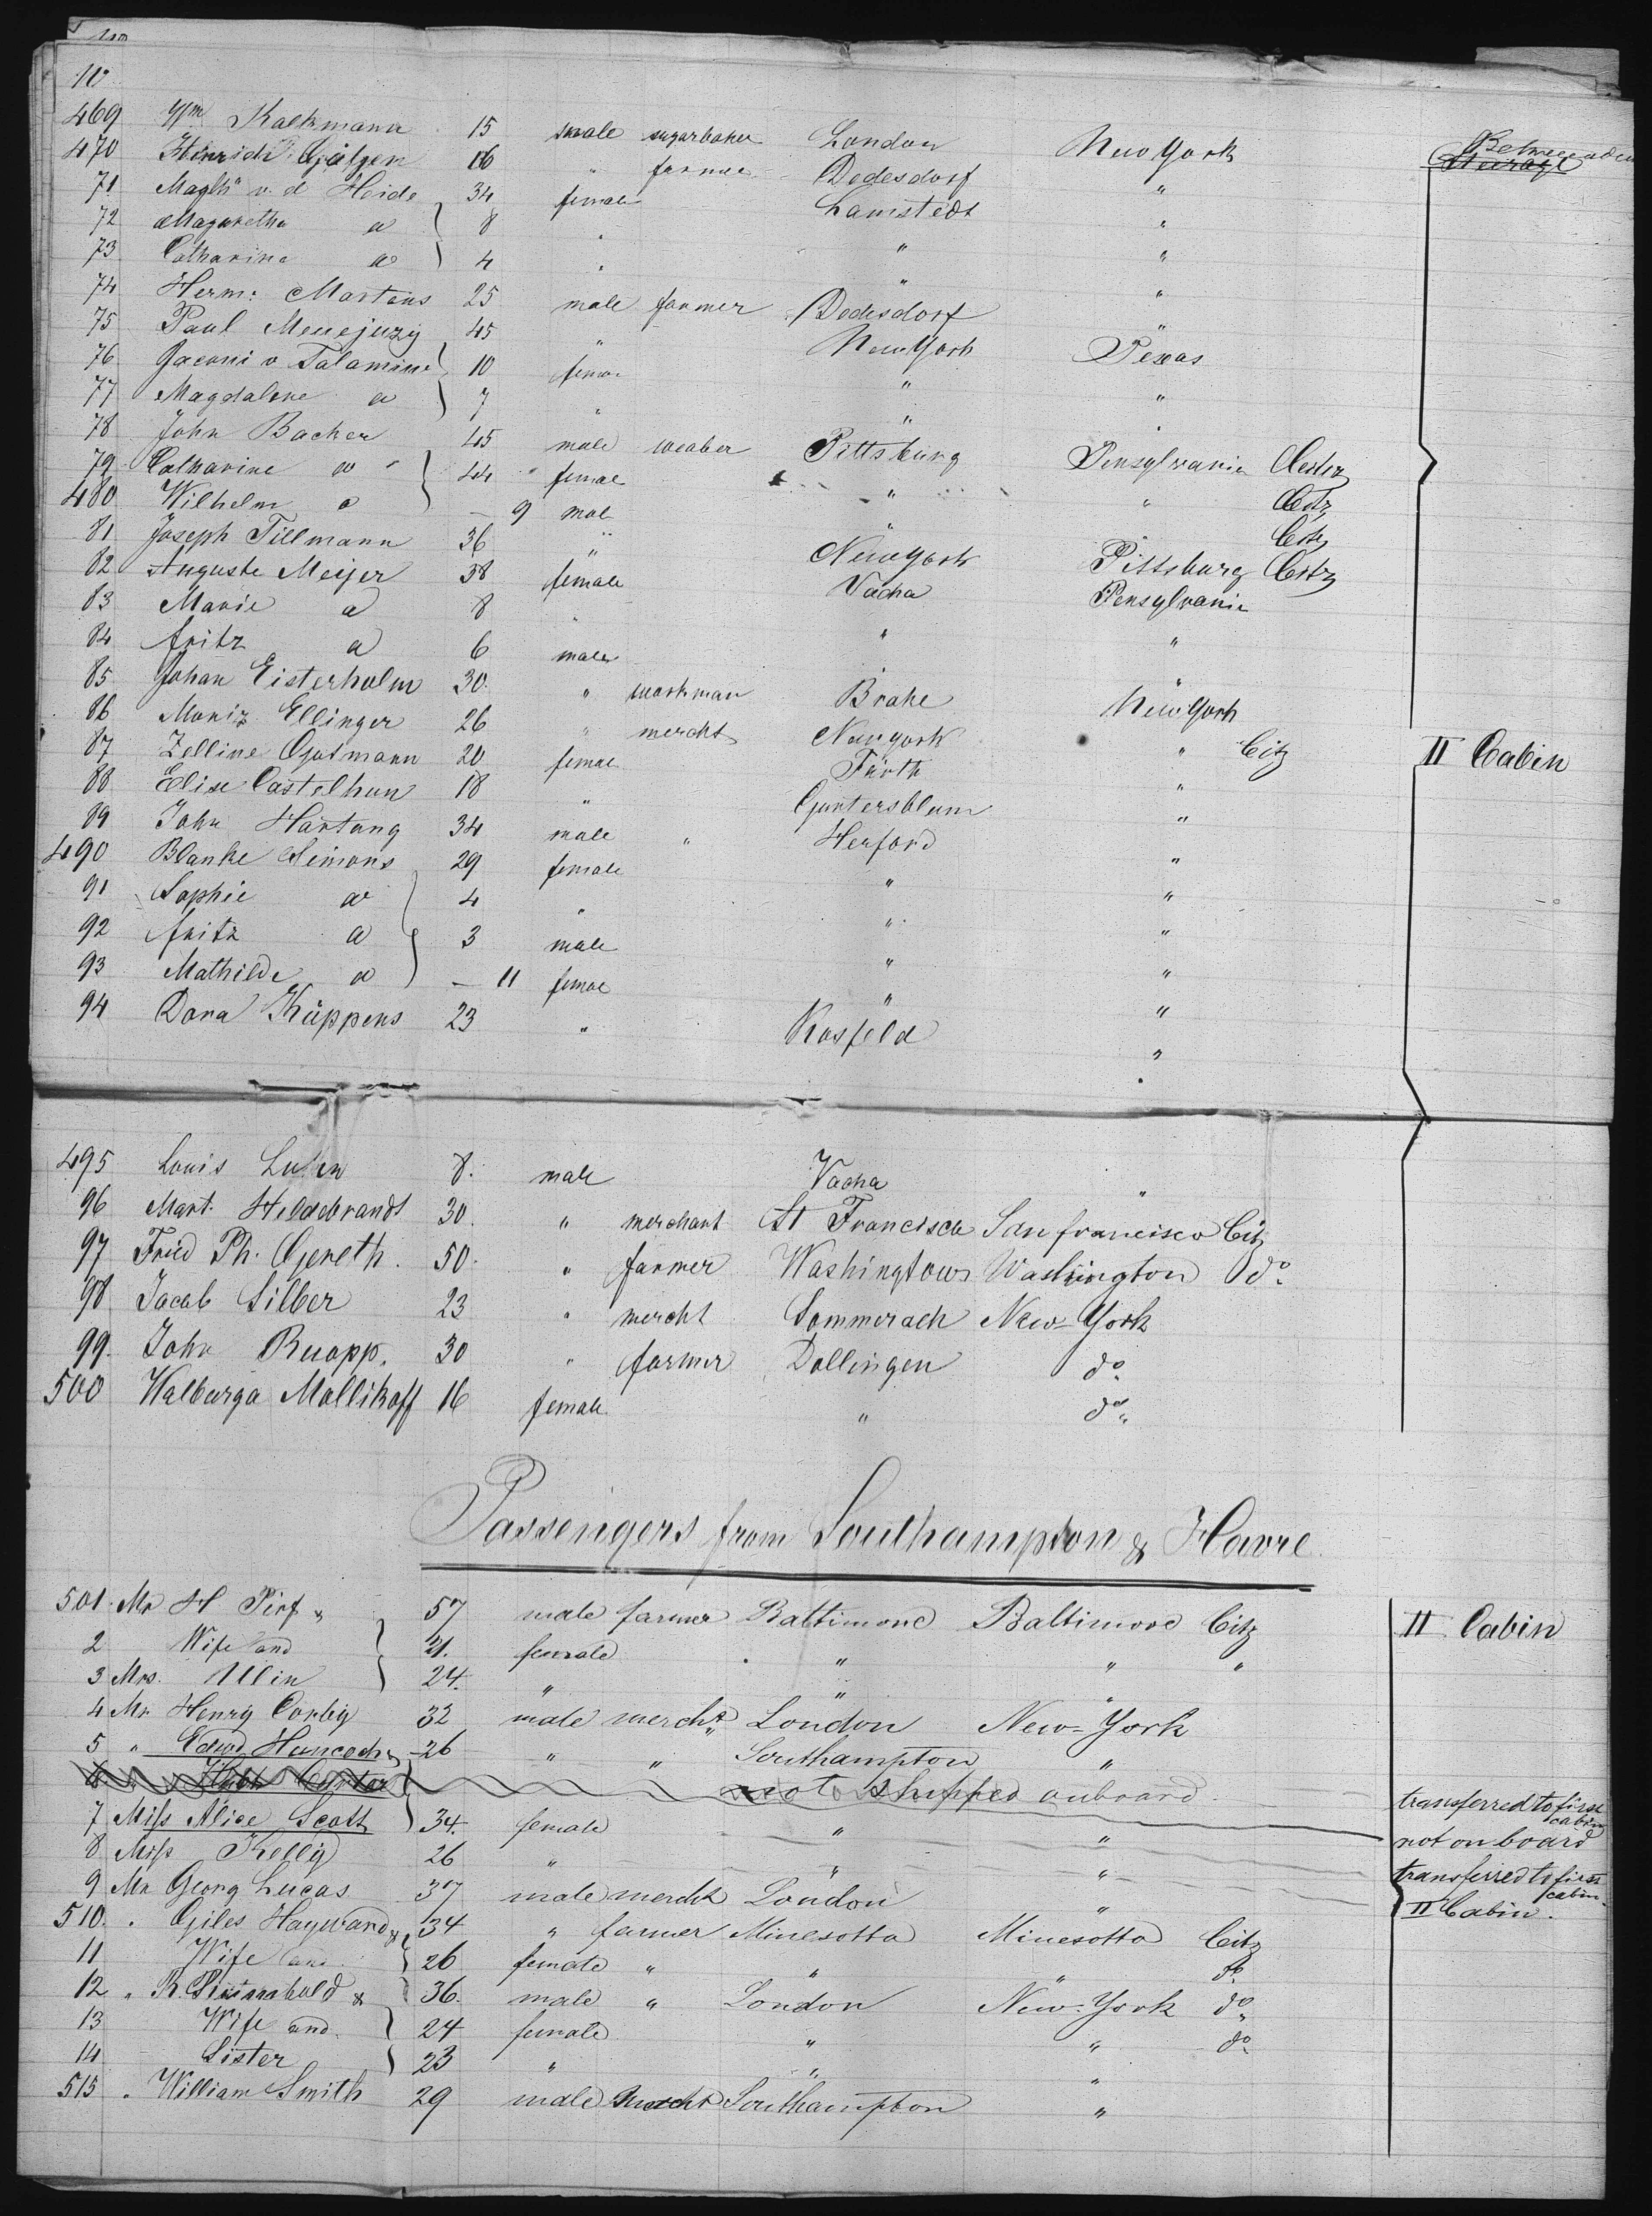 10
469 Wm Kackmann 15 male sugarbaker London New York Between deck
470 Hinrich Gätjen 16 " farmer Dedesdorf "
71 Magth v. d Heide 34 female Lamstedt "
72 Magaretha a 8 " " "
73 Catharina a 4 " " "
74 Herm: Martens 25 male farmer Dedesdorf "
75 Paul 45 " New York Texas
76 Jaconi v Talamini 10 fema " "
77 Magdalene a 7 " " "
78 John Backer 45 male weaber Pittsburg Pensylvania Citz
79 Catharine a 44 female " " Citz
480 Wilhelm a 9 mal " " Citz
81 Joseph Tillmann 36 " New York Pittsburg Citz
82 Auguste Meijer 38 female Vacha Pensylvania
83 Marie a 8 " " "
84 fritz a 6 male " "
85 Johan Eisterholm 30 " workman Brake New York
86 Moriz Ellinger 26 " mercht New york " Citz II Cabin
87 Zelline Gutmann 20 female Fürth "
88 Elise Castelhun 18 " Guntersblum "
89 John Hartung 34 male " Herford "
490 Blanke Simons 29 female " "
91 Sophie a 4 " " "
92 fritz a 3 male " "
93 Mathilde a 11 femae " "
94 Dora Küppens 23 " Kosfeld "
495 Louis 8. male Vacha "
96 Mart. Heldebrandt 30. " merchant St Francisca San francisco Citz
97 Fried Ph. Gereth. 50. " farmer Washington Washington do
98 Jacob Silber 23 " mercht Sommerach New-York
99. John Ruopp. 30 " farmer Dollingen do
500 Walburga Mollikoff 16 female " do
Passengers from Southampton & Havre.
501. Mr H & 57 male farmer Baltimore Baltimore Citz II Cabin
2 Wife and 21. female " " "
3 Mrs. Ulin 24. " " "
4 Mr Henry Corby 32 male mercht London New-York
5 " Edwd Hancock 26 " " Southampton "
6 Carter not shipped onboard transferred to first cabin
7 Miss Alice Scott 34. female " " not on board
8 Miss Kelly 26 " " " transferred to first cabin
9 Mr Georg Lucas 37 male mercht London " II Cabin.
510. " Giles Hayward & 34 " farmer Minesotta Minesotta Citz
11 Wife and 26 female " " " do
12 " R. & 36. male " London New-York do
13 Wife and 24 female " " do
14 Sister 23 " " "
515 " William Smith 29 male mercht Southampton "